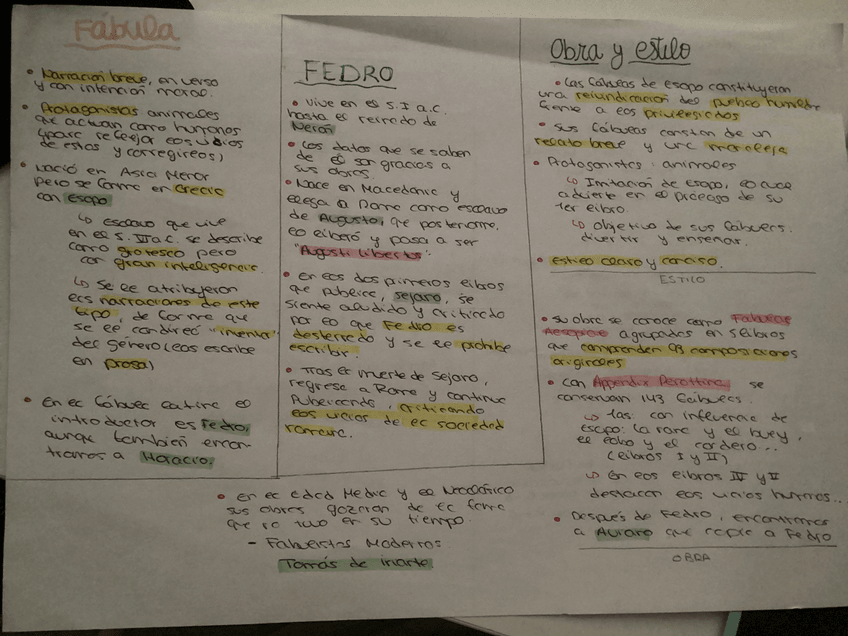 Fábula
• Narración breve, en verso
y con intención moral.
• Protagonistas animales
que actúan como humanos
(para reflejar los vicios
de estos y corregirlos)
• Nació en Asia Menor
pero se forma en Grecia
con Esopo
↳ esclavo que vive
en el S. VI a.C. se describe
como grotesco pero
con gran inteligencia.
↳ Se le atribuyeron
las narraciones de este
tipo, de forma que
se le
del género (los escribe
en prosa)
• En la fábula latina el
introductor es Fedro,
aunque también encon-
tramos a Horacio.
FEDRO
• Vive en el S. I a.C.
hasta el reinado de
Nerón
• Los datos que se saben
de él son gracias a
sus obras.
• Nace en Macedonia y
llega a Roma como esclavo
de Augusto, que posteriorm.
lo liberó y pasa a ser
"Augusti libertus".
• En los dos primeros libros
que publica, Sejano, se
siente aludido y criticado
por lo que Fedro es
desterrado y se le prohíbe
escribir.
• Tras la muerte de Sejano,
regresa a Roma y continúa
publicando, criticando
los vicios de la sociedad
romana.
• En la Edad Media y el Neoclásico
sus obras gozaron de la fama
que no tuvo en su tiempo.
- Fabulistas Modernos
Tomás de Iriarte
Obra y estilo
• Las fábulas de Esopo constituyeron
una reivindicación del pueblo humilde
frente a los privilegiados
• Sus fábulas constan de un
relato breve y una moraleja
• Protagonistas: animales
↳ Imitación de Esopo, lo cual
advierte en el prólogo de su
1er libro.
↳ objetivo de sus fábulas:
divertir y enseñar.
• Estilo claro y conciso.
ESTILO
• Su obra se conoce como Fabulas
Aesopicae agrupadas en 5 libros
que comprenden 93 composiciones
originales
• Con Appendix Perottina se
conservan 143 fábulas.
↳ las: con influencia de
Esopo: la rana y el buey,
el lobo y el cordero...
(libros I y II)
↳ En los libros IV y V
destacan los vicios humanos...
• Después de Fedro, encontramos
a Aviano que copia a Fedro
OBRA